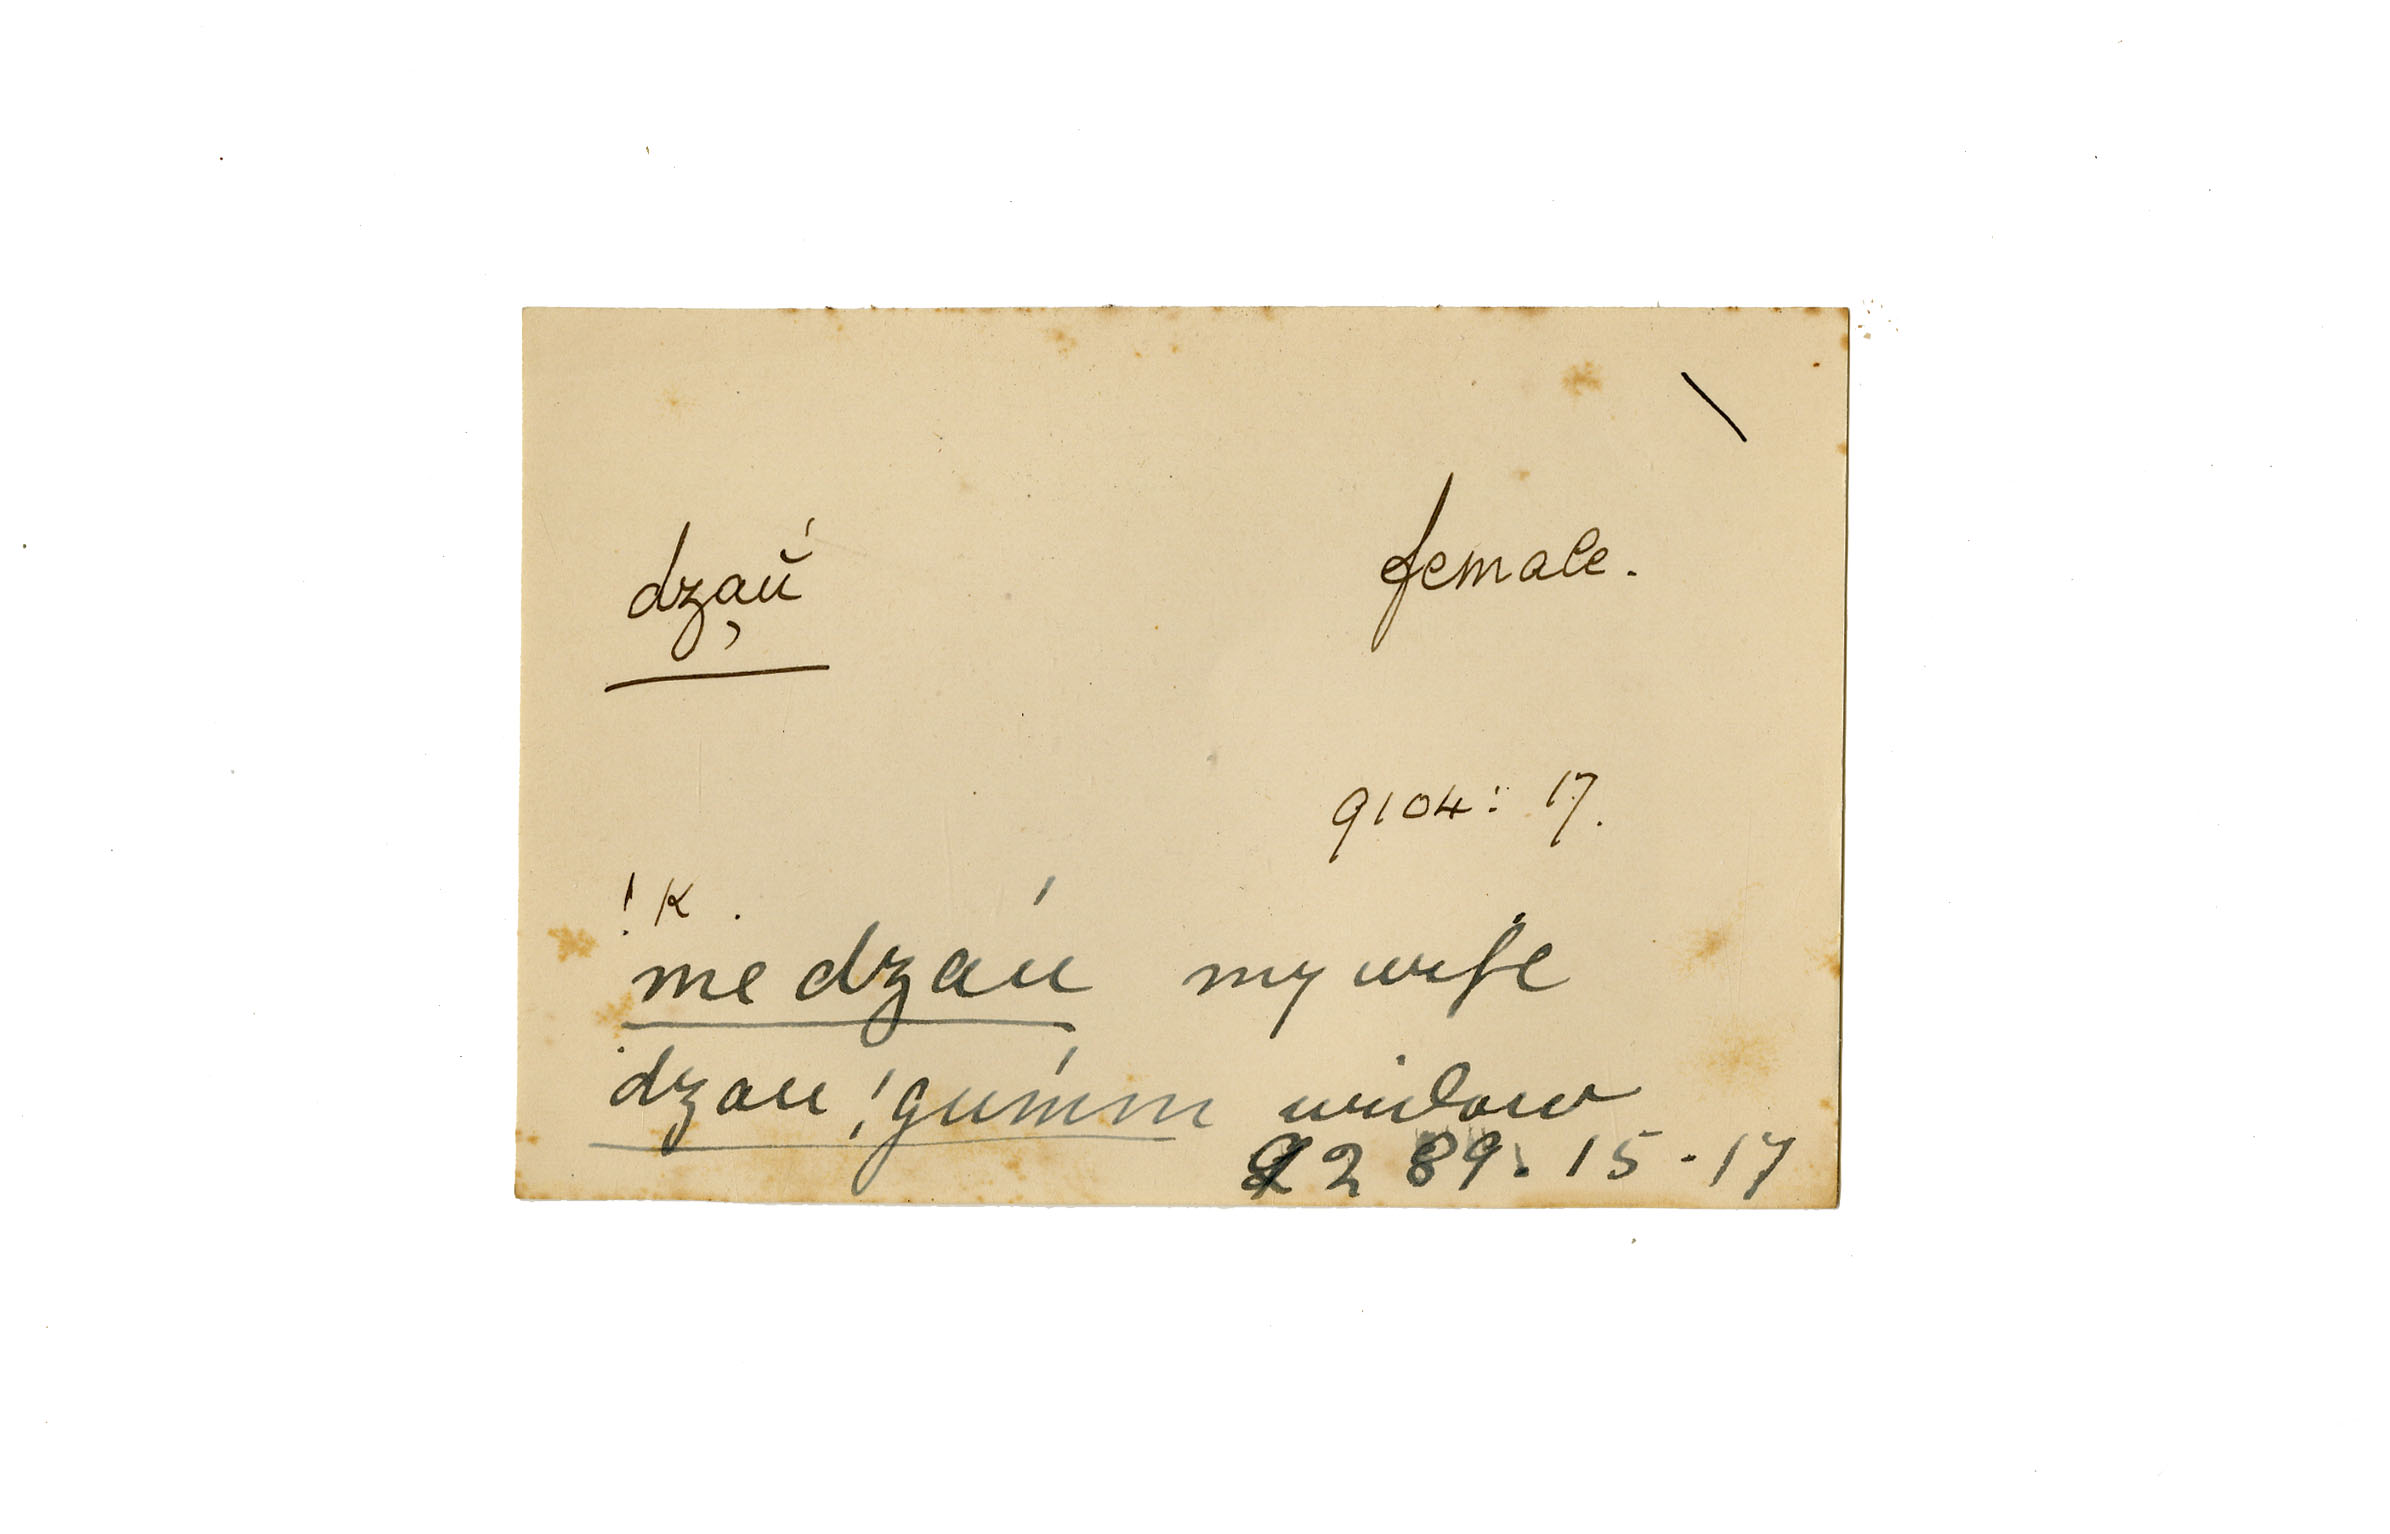 \
dza̦ŭ́ female.
9104: 17.
!K.
me dzaú my wife
dzau !gúmm widow
9289. 15-17